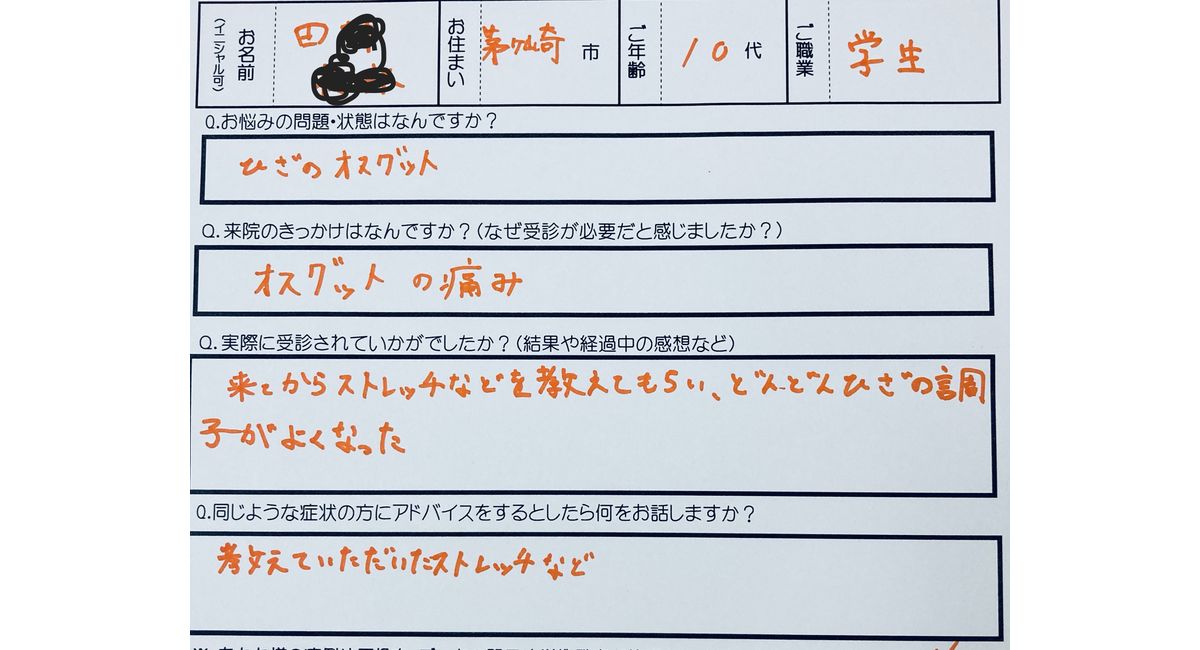 お名前
(イニシャル可)
田
お住まい
茅ヶ崎 市
ご年齢
10 代
ご職業
学生
Q.お悩みの問題・状態はなんですか？
ひざのオスグット
Q.来院のきっかけはなんですか？(なぜ受診が必要だと感じましたか？)
オスグットの痛み
Q.実際に受診されていかがでしたか？(結果や経過中の感想など)
来てからストレッチなどを教えてもらい、どんどんひざの調
子がよくなった
Q.同じような症状の方にアドバイスをするとしたら何をお話しますか？
教えていただいたストレッチなど